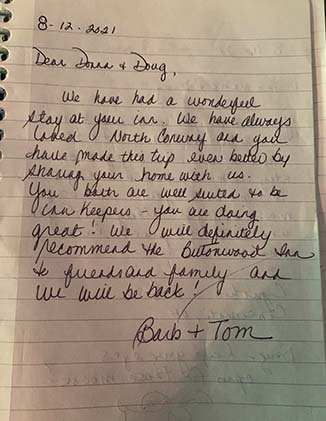 8-12-2021
Dear Donna & Doug,
We have had a wonderful
stay at your inn. We have always
loved North Conway and you
have made this trip even better by
sharing your home with us.
You both are well suited to be
inn keepers - you are doing
great! We will definitely
recommend the Buttonwood Inn
to friends and family and
we will be back!
Barb + Tom